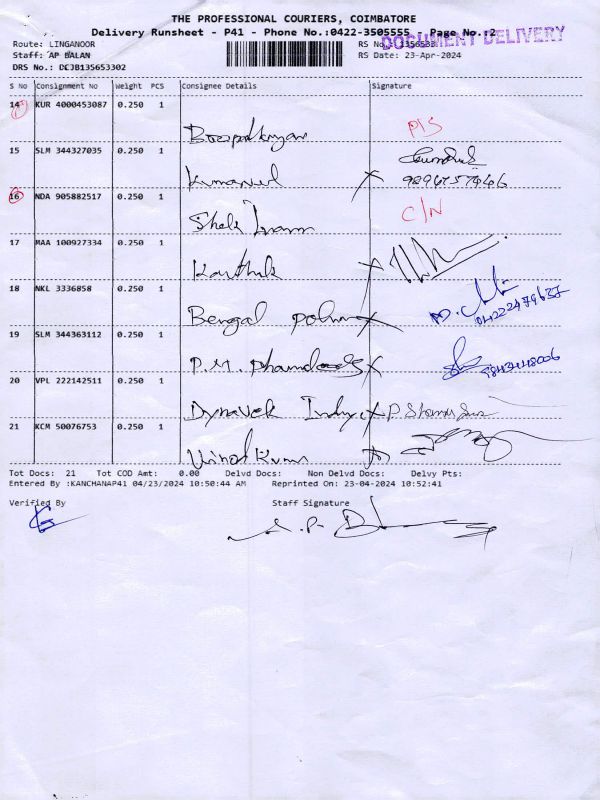 THE PROFESSIONAL COURIERS, COIMBATORE
Delivery Runsheet - P41 - Phone No.:0422-3505555 Page No.:2
DOCUMENT DELIVERY
Route: LINGANOOR RS No.
Staff: AP BALAN RS Date: 23-Apr-2024
DRS No.: DCJB135653302
S No Consignment No Weight PCS Consignee Details Signature
14 KUR 4000453087 0.250 1
P/S
15 SLM 344327035 0.250 1
Kumaravel
16 NDA 905882517 0.250 1
C/N
17 MAA 100927334 0.250 1
Karthik
18 NKL 3336858 0.250 1
Bengal
04222479637
19 SLM 344363112 0.250 1
P.M.
20 VPL 222142511 0.250 1
21 KCM 50076753 0.250 1
Vinoth Kumar
Tot Docs: 21 Tot COD Amt: 0.00 Delvd Docs: Non Delvd Docs: Delvy Pts:
Entered By :KANCHANAP41 04/23/2024 10:50:44 AM Reprinted On: 23-04-2024 10:52:41
Verified By Staff Signature